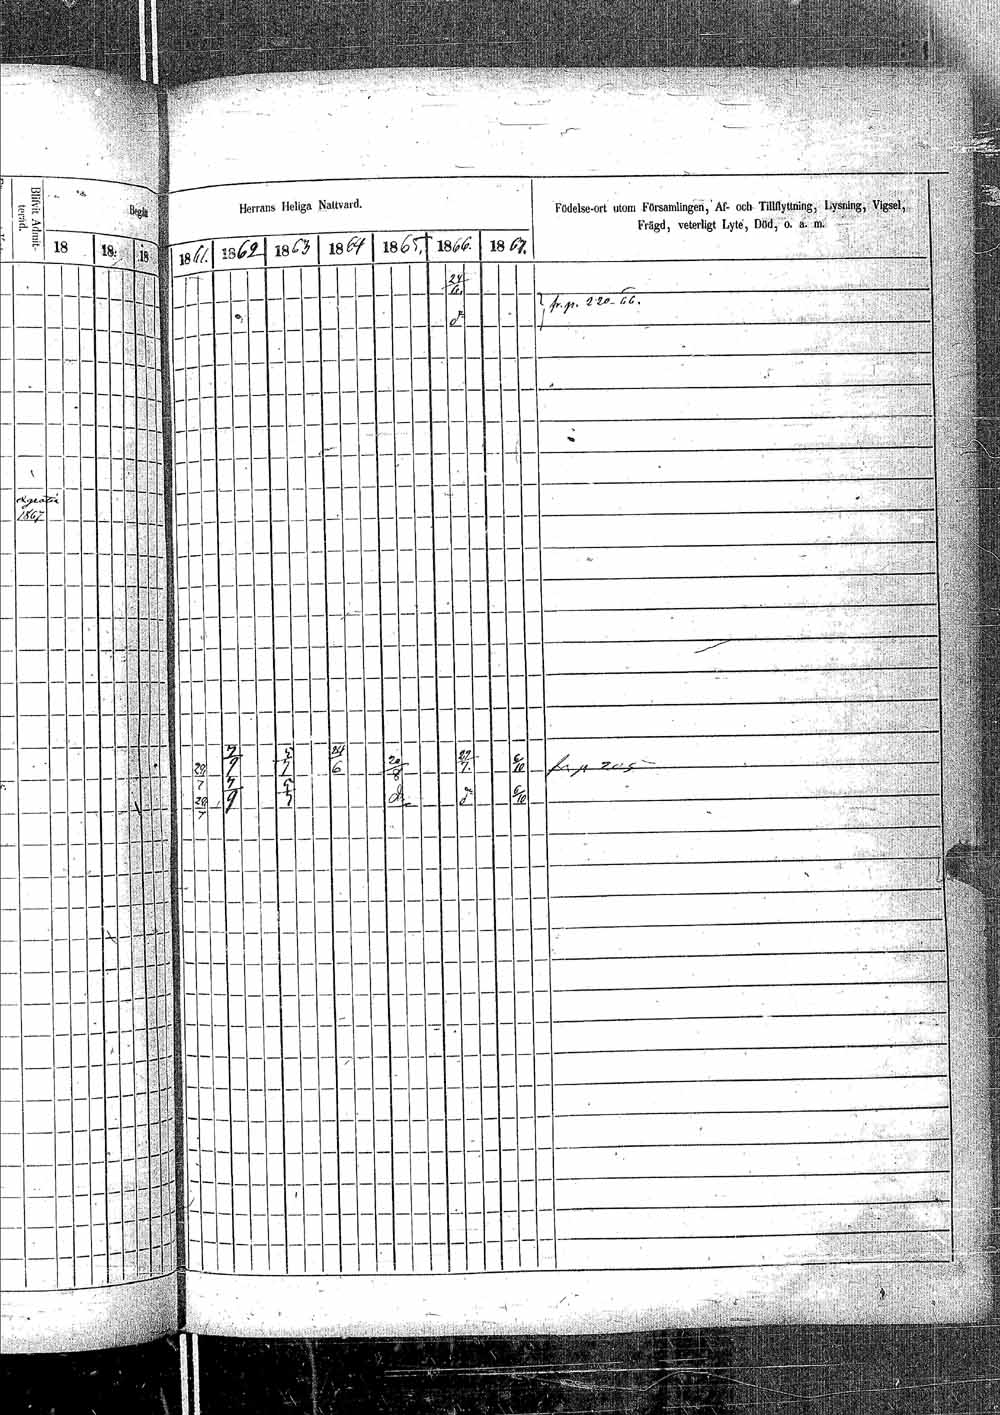 Blifvit Admitteräd.
Begått
Herrans Heliga Nattvard.
Födelse-ort utom Församlingen, Af- och Tillflyttning, Lysning, Vigsel,
Frägd, veterligt Lyte, Död, o. a. m.
18 18 18 1861. 1862 1863 1864 1865. 1866. 1867.
24/6.
fr. p. 220-66.
d:o
1867
29/7 7/9 5/7 24/6 20/8 22/7. 6/10 fr. p 205
29/7 7/9 5/7 d:o d:o 6/10